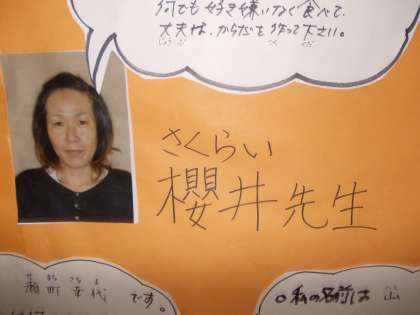 何でも好き嫌いなく食べて、
丈夫な、からだを作って下さい。
さくらい
櫻井先生
町幸代です。
○私の名前は